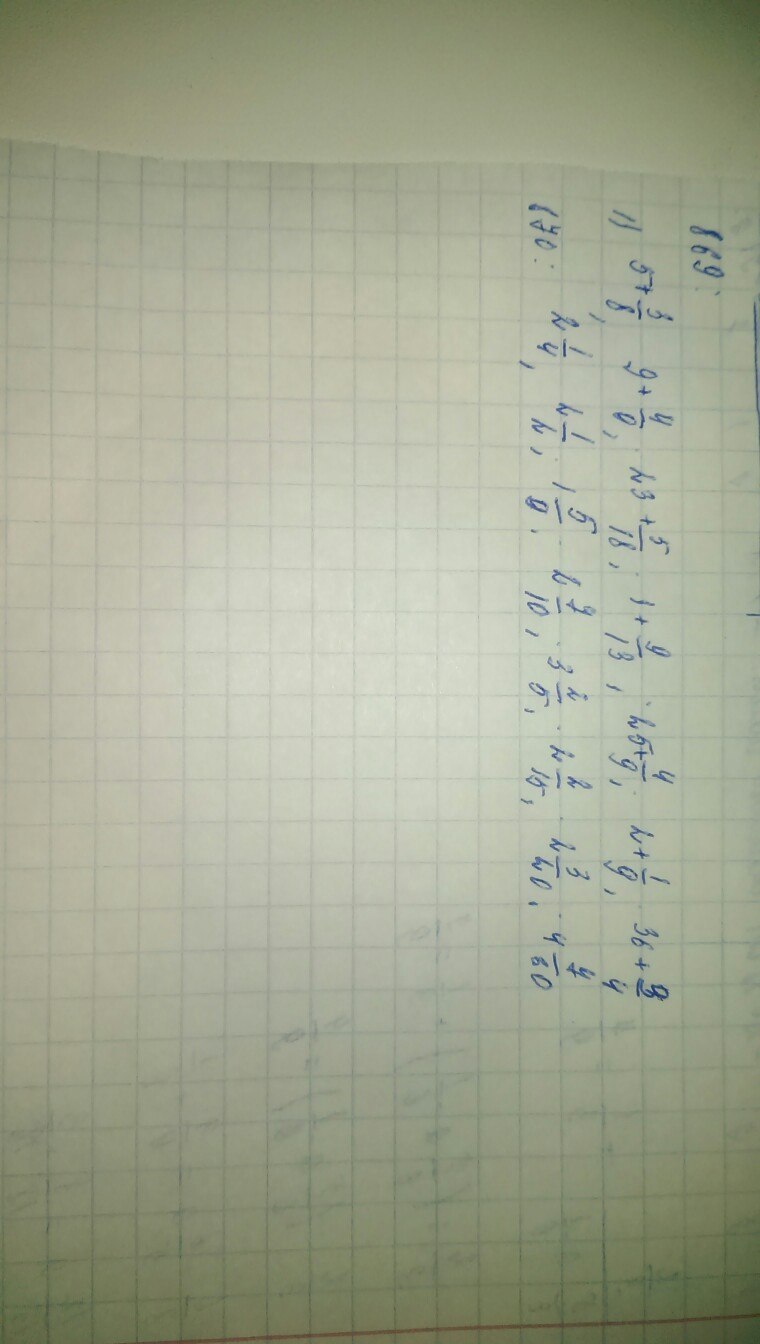 869:
1) 5+3/8, 9+4/6, 23+5/18, 1+9/13, 25+4/9, 2+1/9, 36+3/4
870: 2 1/4, 2 1/2, 1 5/6, 2 7/10, 3 2/5, 2 2/15, 2 3/20, 4 7/60